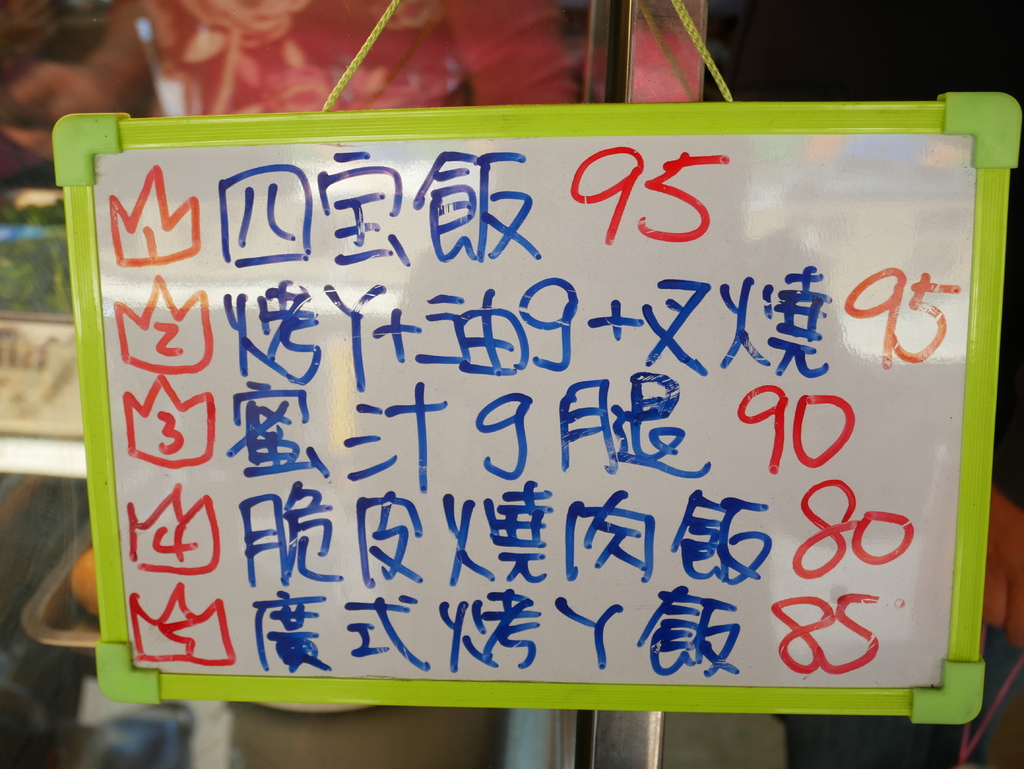 1 四宝飯 95
2 烤丫+油g+叉燒 95
3 蜜汁g腿 90
4 脆皮燒肉飯 80
5 廣式烤丫飯 85